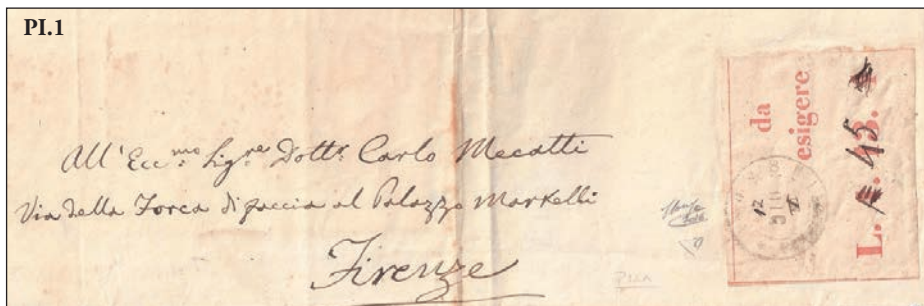 PI.1
All' Ecc.mo Sig.re Dott.r Carlo Mecatti
Via della Forca di faccia al Palazzo Martelli
Firenze
da
esigere
L.
45
12